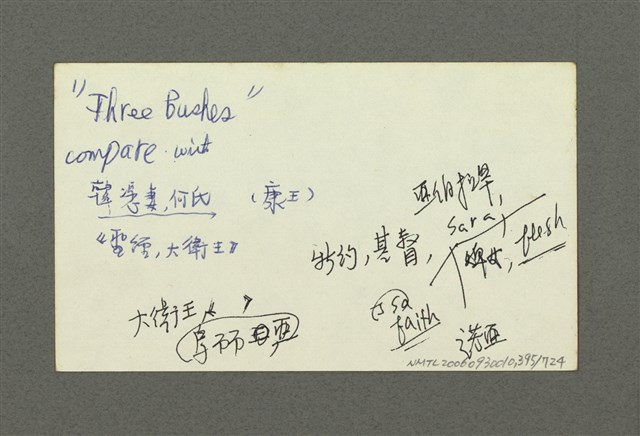 "Three Bushes"
compare with
韓憑妻,何氏 (康王)
《聖經,大衛王》
亞伯拉罕,
Sara,
新約,基督,
婢女, flesh
Isa
faith
大衛王《 》
挪亞
NMTL20060930010,395/724